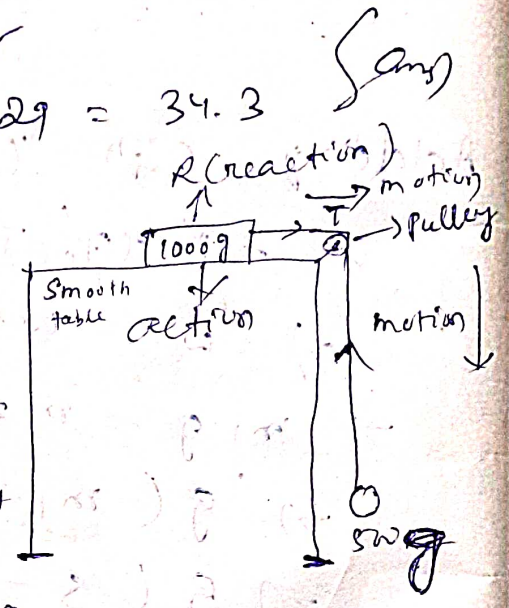 29 = 34.3 (Ans)
R (reaction)
T
motion
pulley
1000g
Smooth
table
action
motion
500g